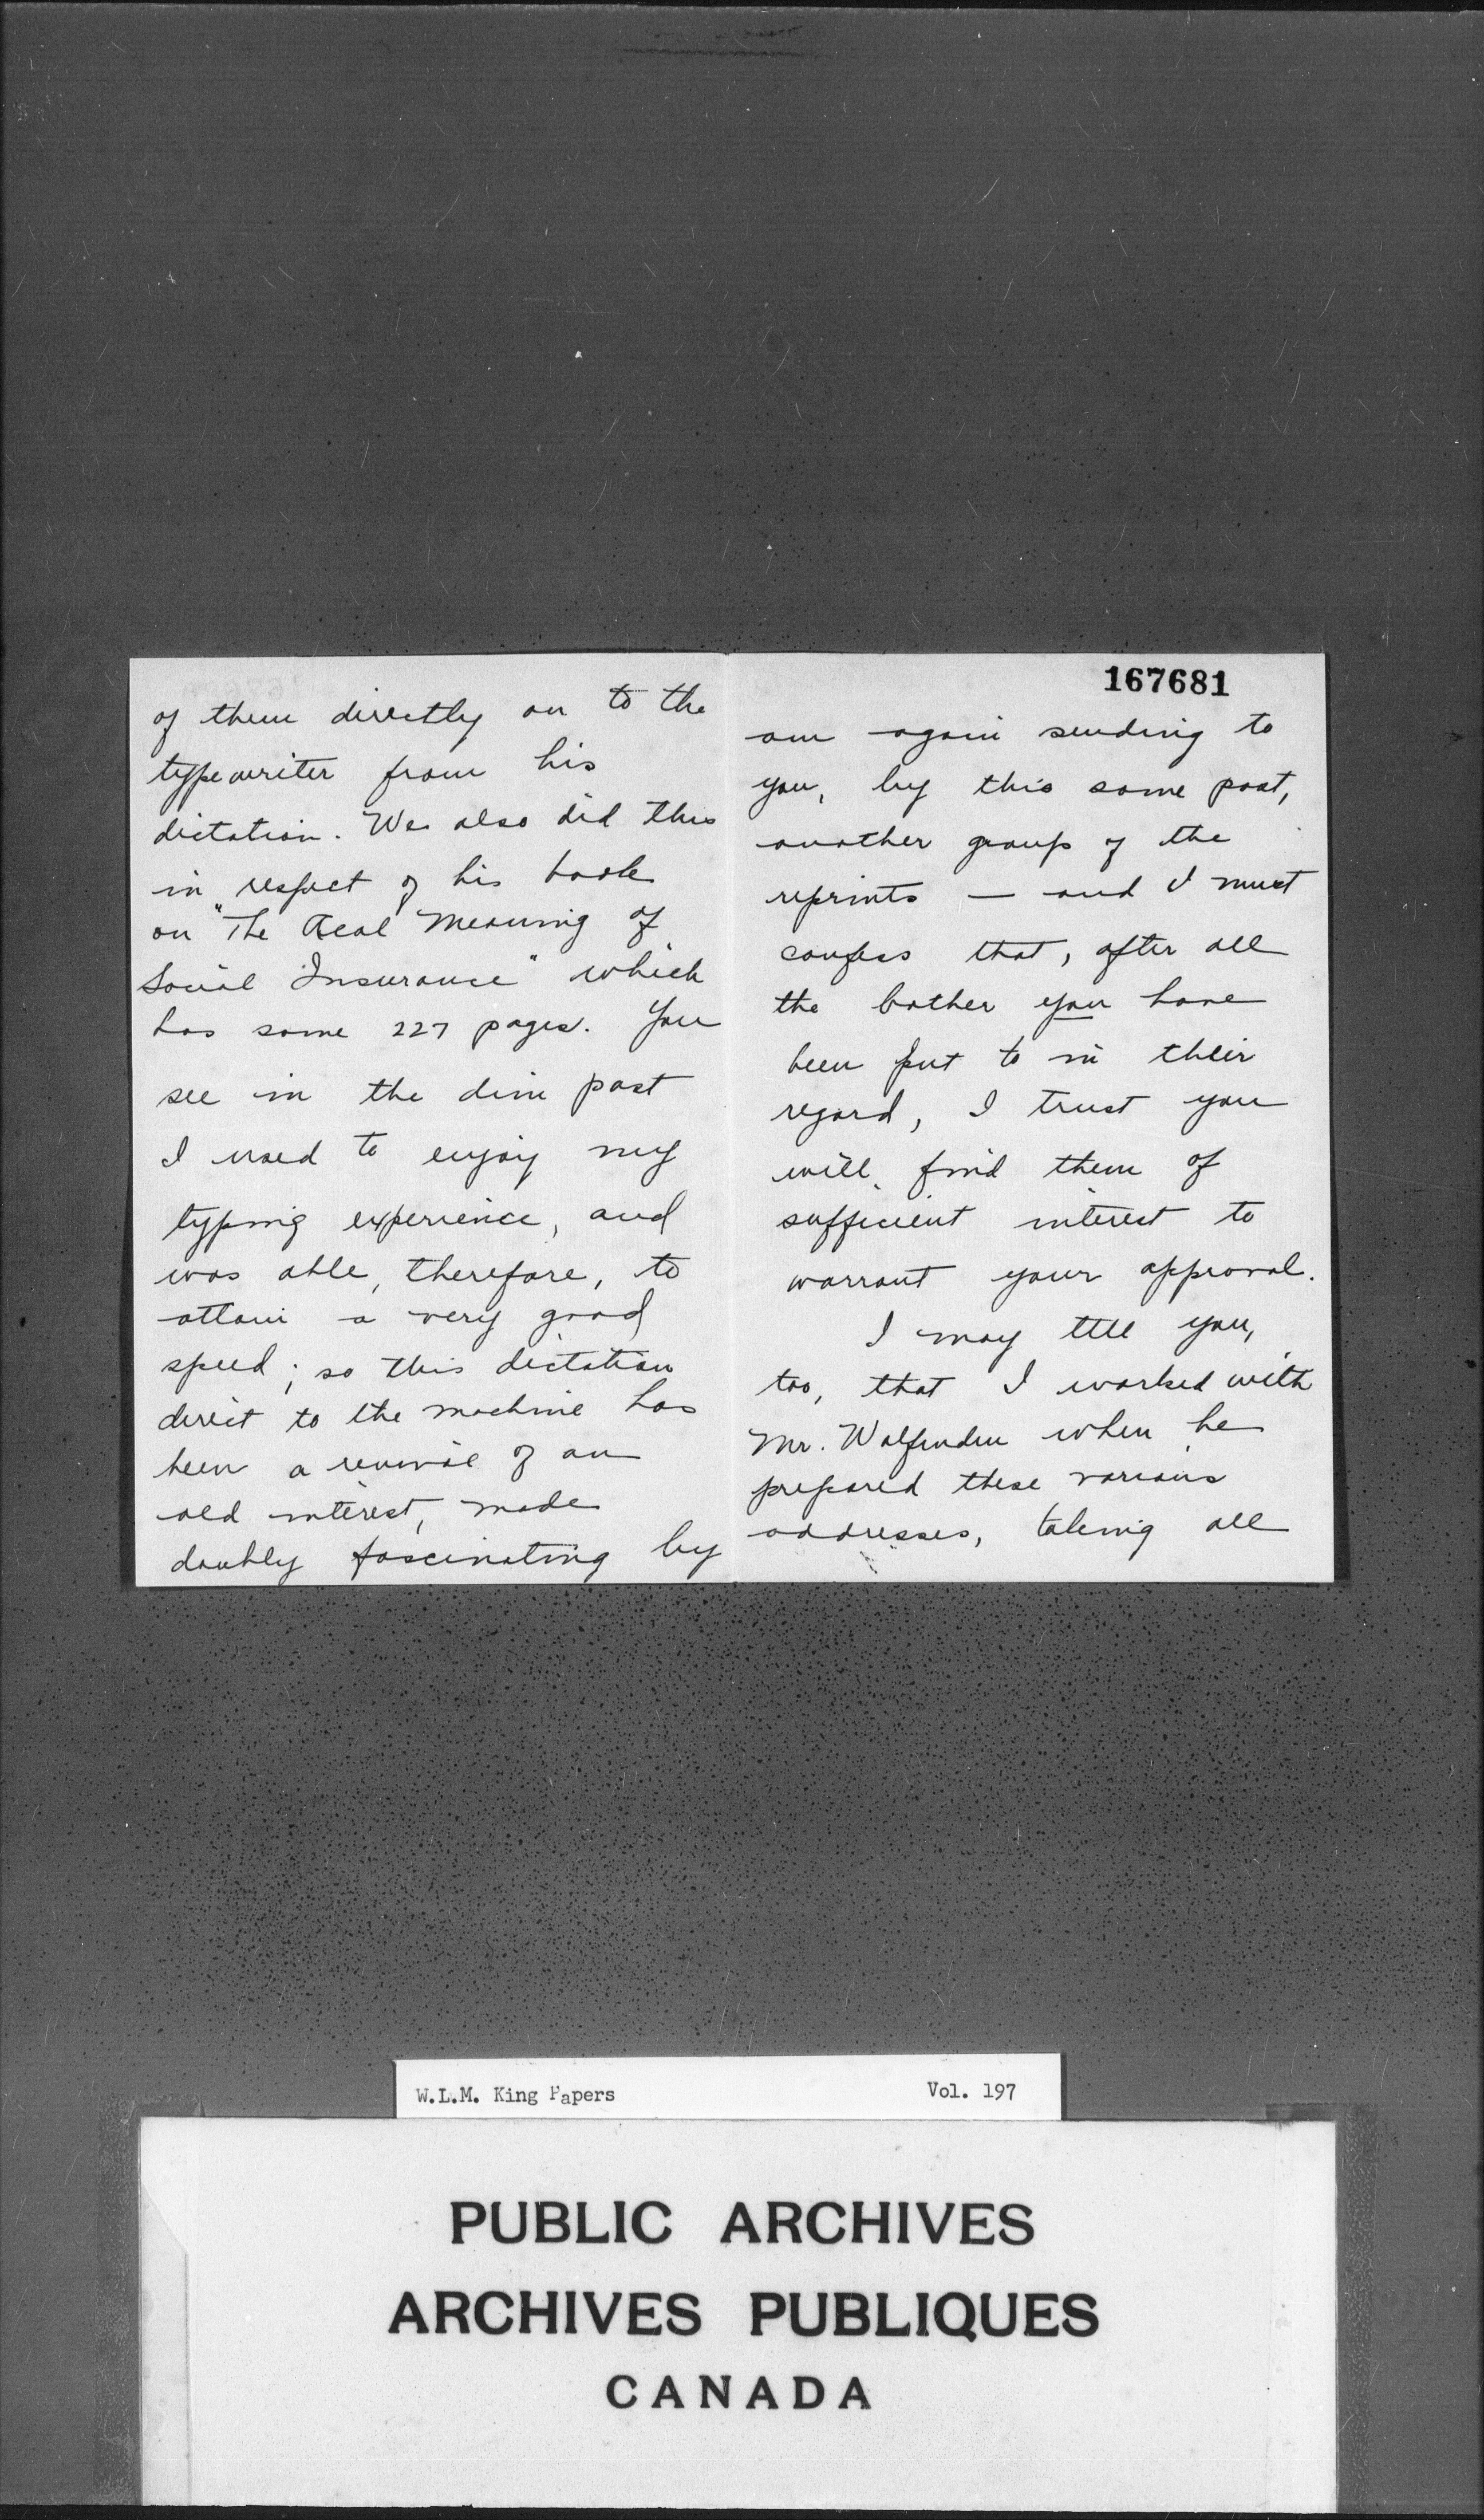 of them directly on to the
typewriter from his
dictation. We also did this
in respect of his book
on "The Real Meaning of
Social Insurance" which
has some 227 pages. You
see in the dim past
I used to enjoy my
typing experience, and
was able, therefore, to
attain a very good
speed; so this dictation
direct to the machine has
been a revival of an
old interest, made
doubly fascinating by
167681
am again sending to
you, by this same post,
another group of the
reprints — and I must
confess that, after all
the bother you have
been put to in their
regard, I trust you
will find them of
sufficient interest to
warrant your approval.
I may tell you,
too, that I worked with
Mr. Wolfenden when he
prepared these various
addresses, taking all
W.L.M. King Papers Vol. 197
PUBLIC ARCHIVES
ARCHIVES PUBLIQUES
CANADA